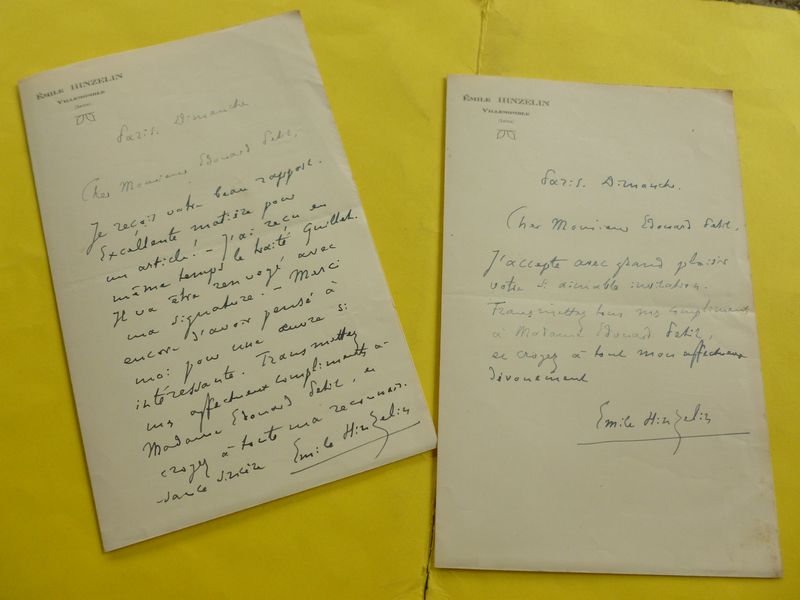 ÉMILE HINZELIN
VILLEMOMBLE
(Seine)
Paris. Dimanche
Cher Monsieur Edouard Petit,
Je reçois votre beau rapport.
Excellente matière pour
un article! – J'ai reçu en
même temps le traité Guillet.
Il va être renvoyé avec
ma signature. – Merci
encore d'avoir pensé à
moi pour une œuvre si
intéressante. Transmettez
mes affectueux compliments à
Madame Edouard Petit, et
croyez à toute ma reconnais-
sance sincère Emile Hinzelin
ÉMILE HINZELIN
VILLEMOMBLE
(Seine)
Paris. Dimanche.
Cher Monsieur Edouard Petit,
J'accepte avec grand plaisir
votre si aimable invitation.
Transmettez tous mes compliments
à Madame Edouard Petit,
et croyez à tout mon affectueux
dévouement
Emile Hinzelin